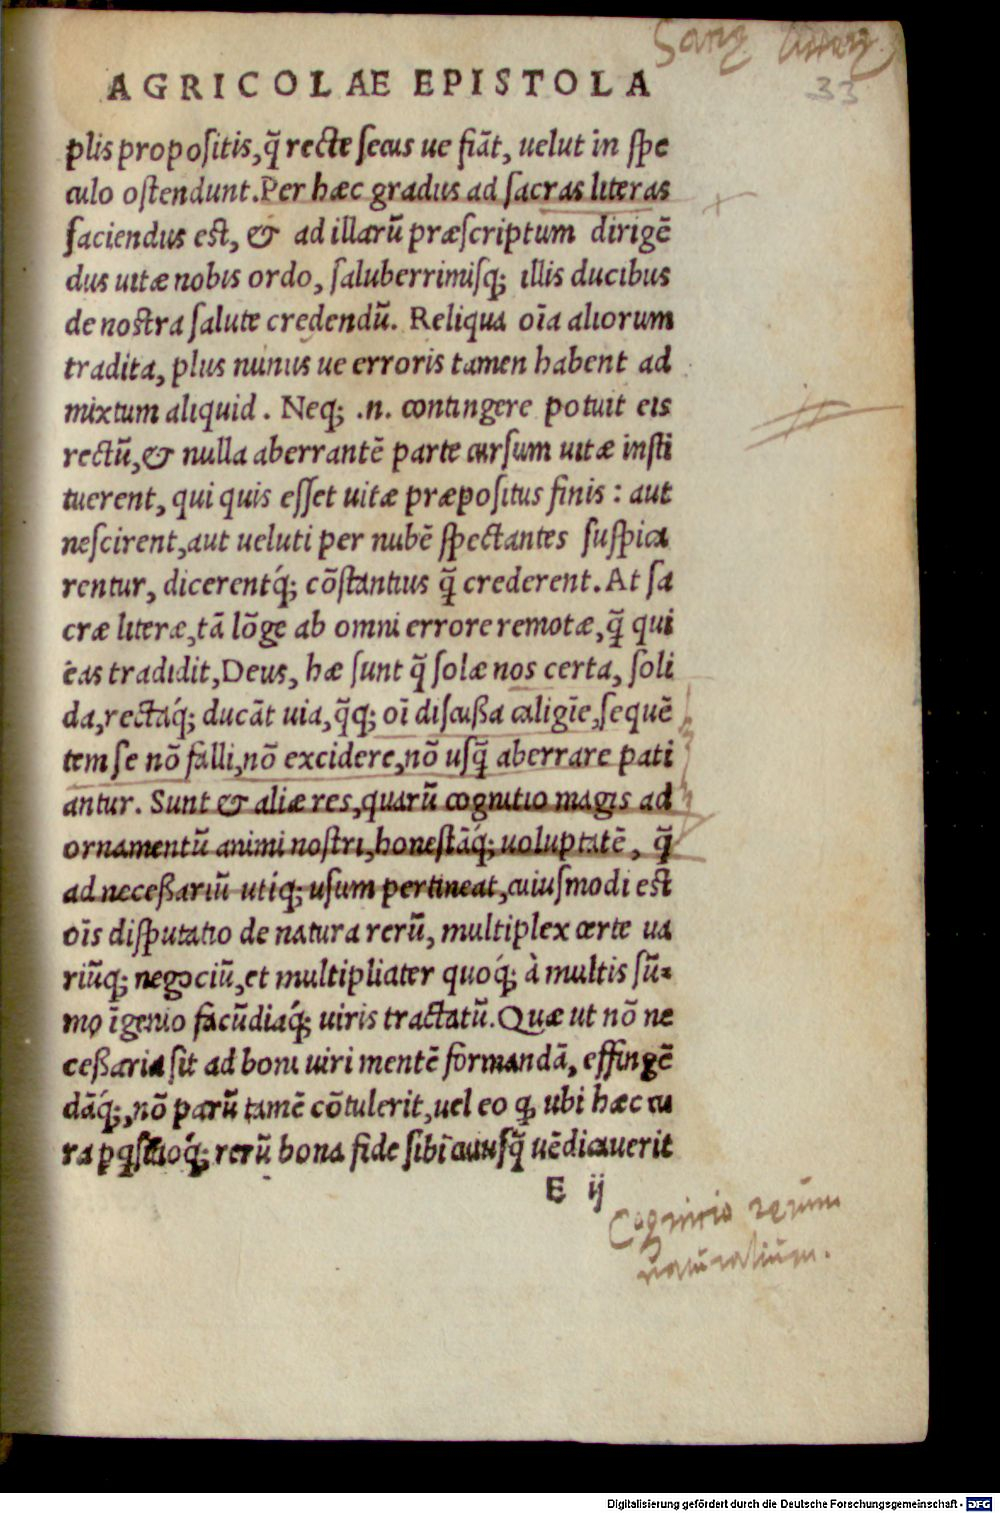 33
AGRICOLAE EPISTOLA
plis propositis, q̃ recte secus ue fiāt, uelut in spe
culo ostendunt. Per hæc gradus ad sacras literas
faciendus est, & ad illarū præscriptum dirigē
dus uitæ nobis ordo, saluberrimisq; illis ducibus
de nostra salute credendū. Reliqua oīa aliorum
tradita, plus minus ue erroris tamen habent ad
mixtum aliquid. Neq; .n. contingere potuit eis
rectū, & nulla aberrantē parte cursum uitæ insti
tuerent, qui quis esset uitæ præpositus finis: aut
nescirent, aut ueluti per nubē spectantes suspica
rentur, dicerentq́; cōstantius q̃ crederent. At sa
cræ literæ, tā lōge ab omni errore remotæ, q̃ qui
eas tradidit, Deus, hæ sunt q̃ solæ nos certa, soli
da, rectaq́; ducāt uia, q̃q; oī discußa caligīe, sequē
tem se nō falli, nō excidere, nō usq̃ aberrare pati
antur. Sunt & aliæ res, quarū cognitio magis ad
ornamentū animi nostri, honestāq́; uoluptatē, q̃
ad necessariū utiq; usum pertineat, cuiusmodi est
oīs disputatio de natura rerū, multiplex certe ua
riūq; negociū, et multipliciter quoq́; à multis sū⸗
mo īgenio facūdiaq́; uiris tractatū. Quæ ut nō ne
ceßaria sit ad boni uiri mentē formandā, effingē
dāq́;, nō parū tamē cōtulerit, uel eo q, ubi hæc cu
ra rerū bona fide sibi uēdicauerit
E ij
Cognitio rerum
naturalium.
Digitalisierung gefördert durch die Deutsche Forschungsgemeinschaft - DFG